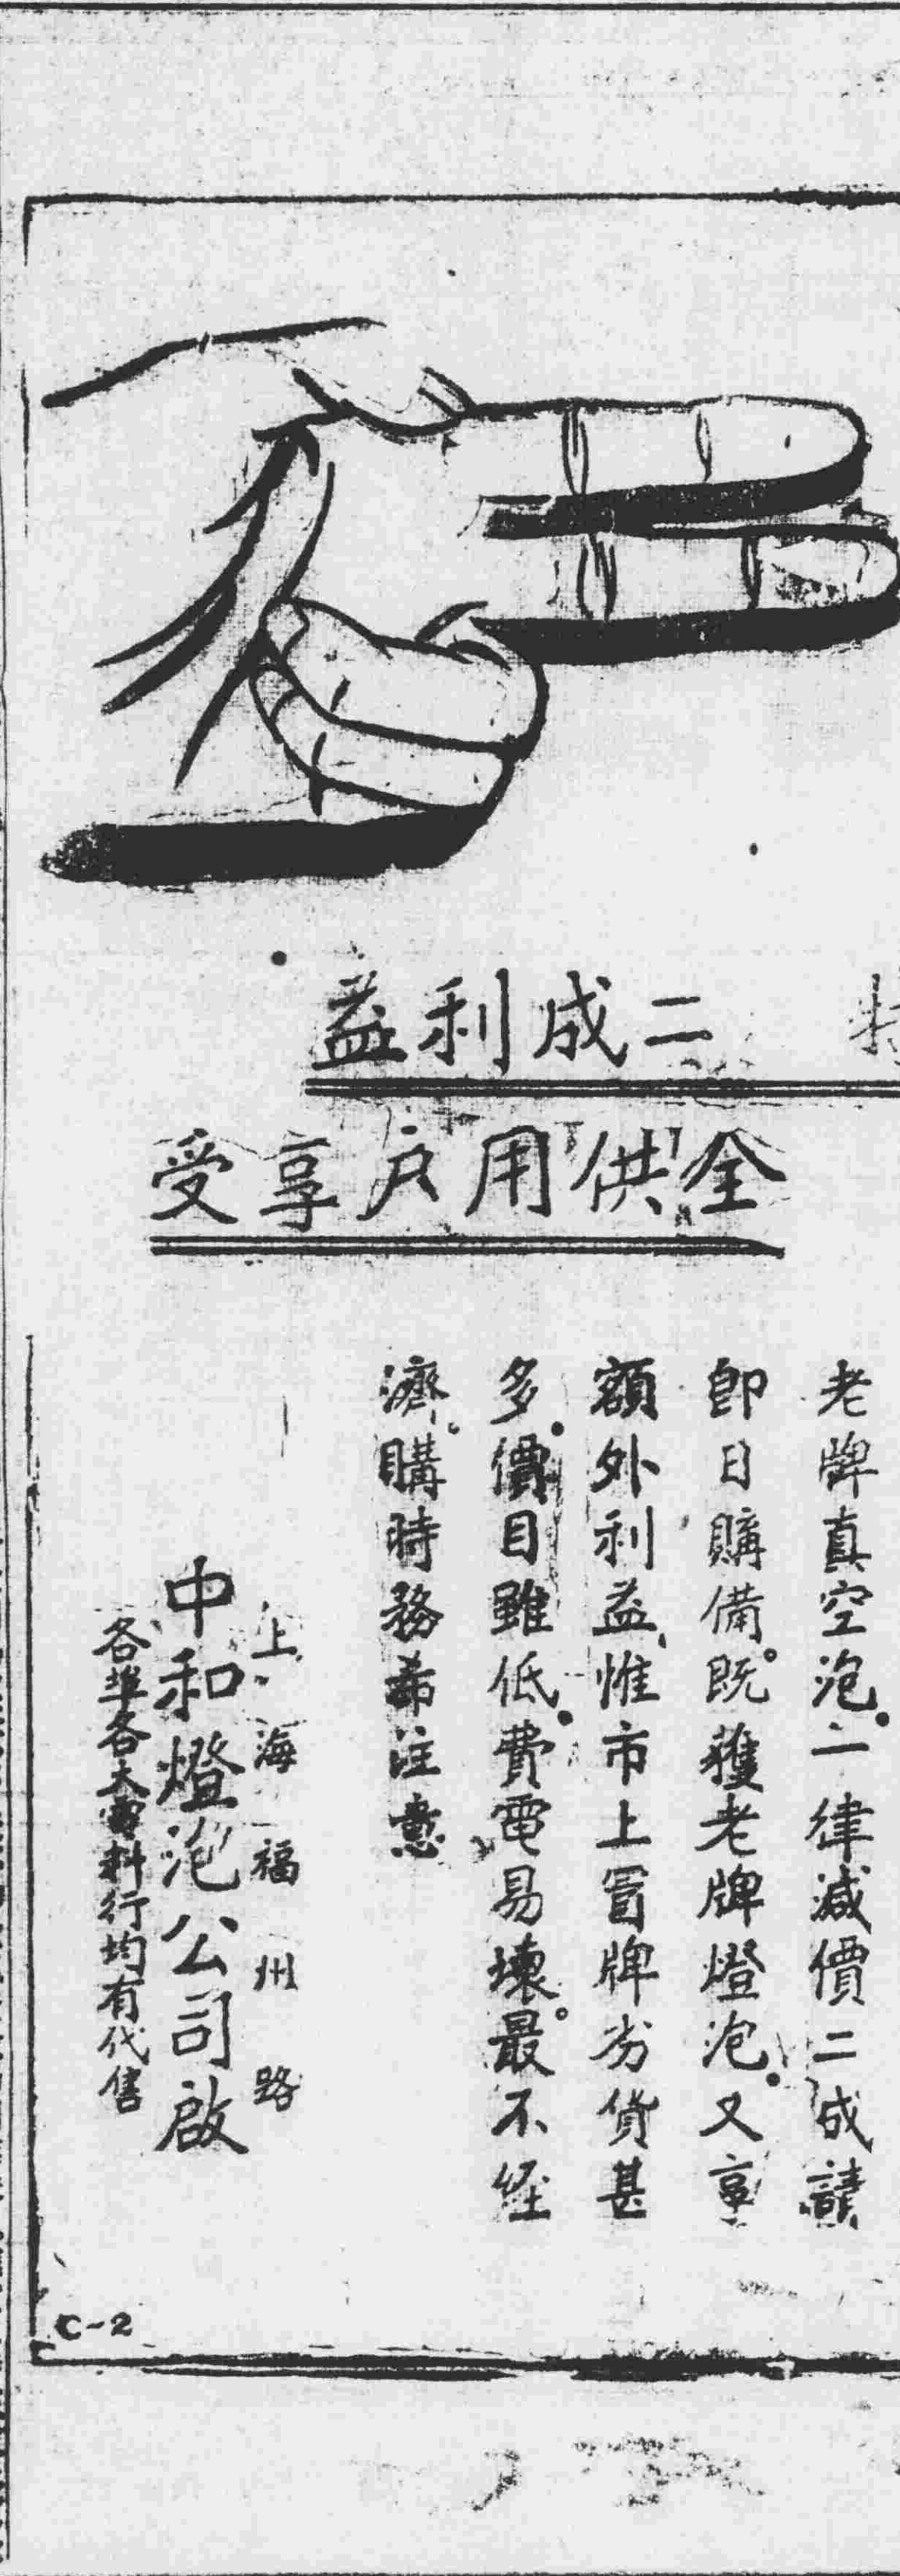 二成利益
全供用戶享受
老牌真空泡。一律減價二成請
即日購備。既獲老牌燈泡。又享
額外利益、惟市上冒牌劣貨甚
多。價目雖低。費電易壞。最不經
濟。購時務希注意
上海福州路
中和燈泡公司啟
各埠各大電料行均有代售
C-2